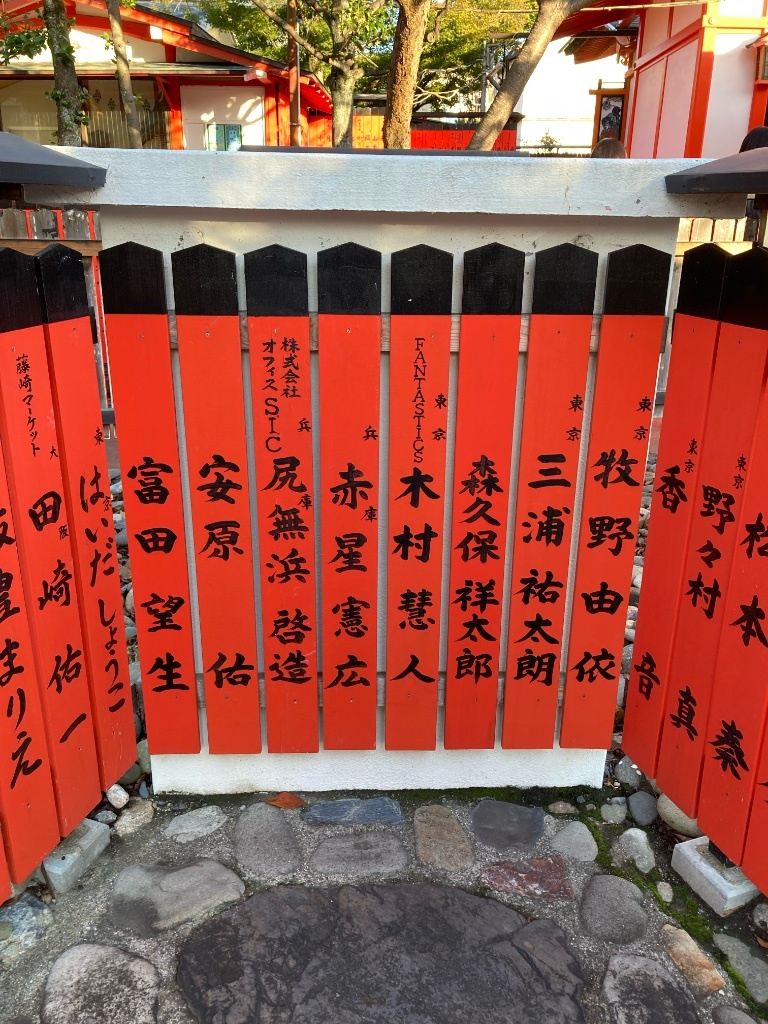 松本
東京
野々村 真
東京
香音
東京
牧野由依
東京
三浦祐太朗
森久保祥太郎
FANTASTICS
東京
木村慧人
兵庫
赤星憲広
株式会社
オフィスSIC
兵庫
尻無浜啓造
安原 佑
富田望生
東京
はいだしょうこ
藤崎マーケット
大阪
田崎佑一
豊まりえ